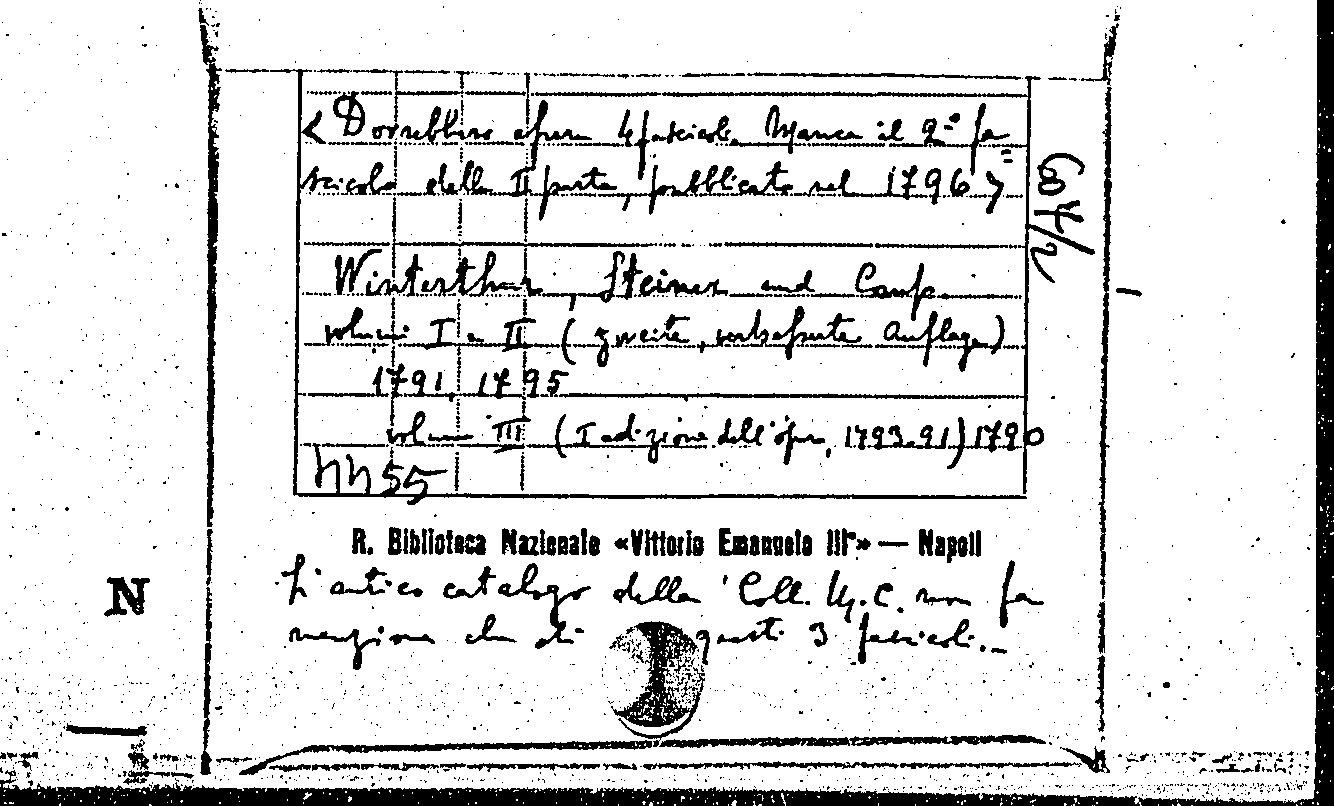 < Dovrebbero essere 4 fascicoli. Manca il 2º fa=
scicolo della II parte, pubblicato nel 1796 >
Winterthur, Steiner und Comp.
volumi I e II (zweite, verbesserte Auflage)
1791, 1795
volume III (I edizione dell'opera, 1793.91) 1790
55
R. Biblioteca Nazionale «Vittorio Emanuele III°» — Napoli
L'antico catalogo della Coll. M. C. non fa
menzione che di questi 3 fascicoli.-
N